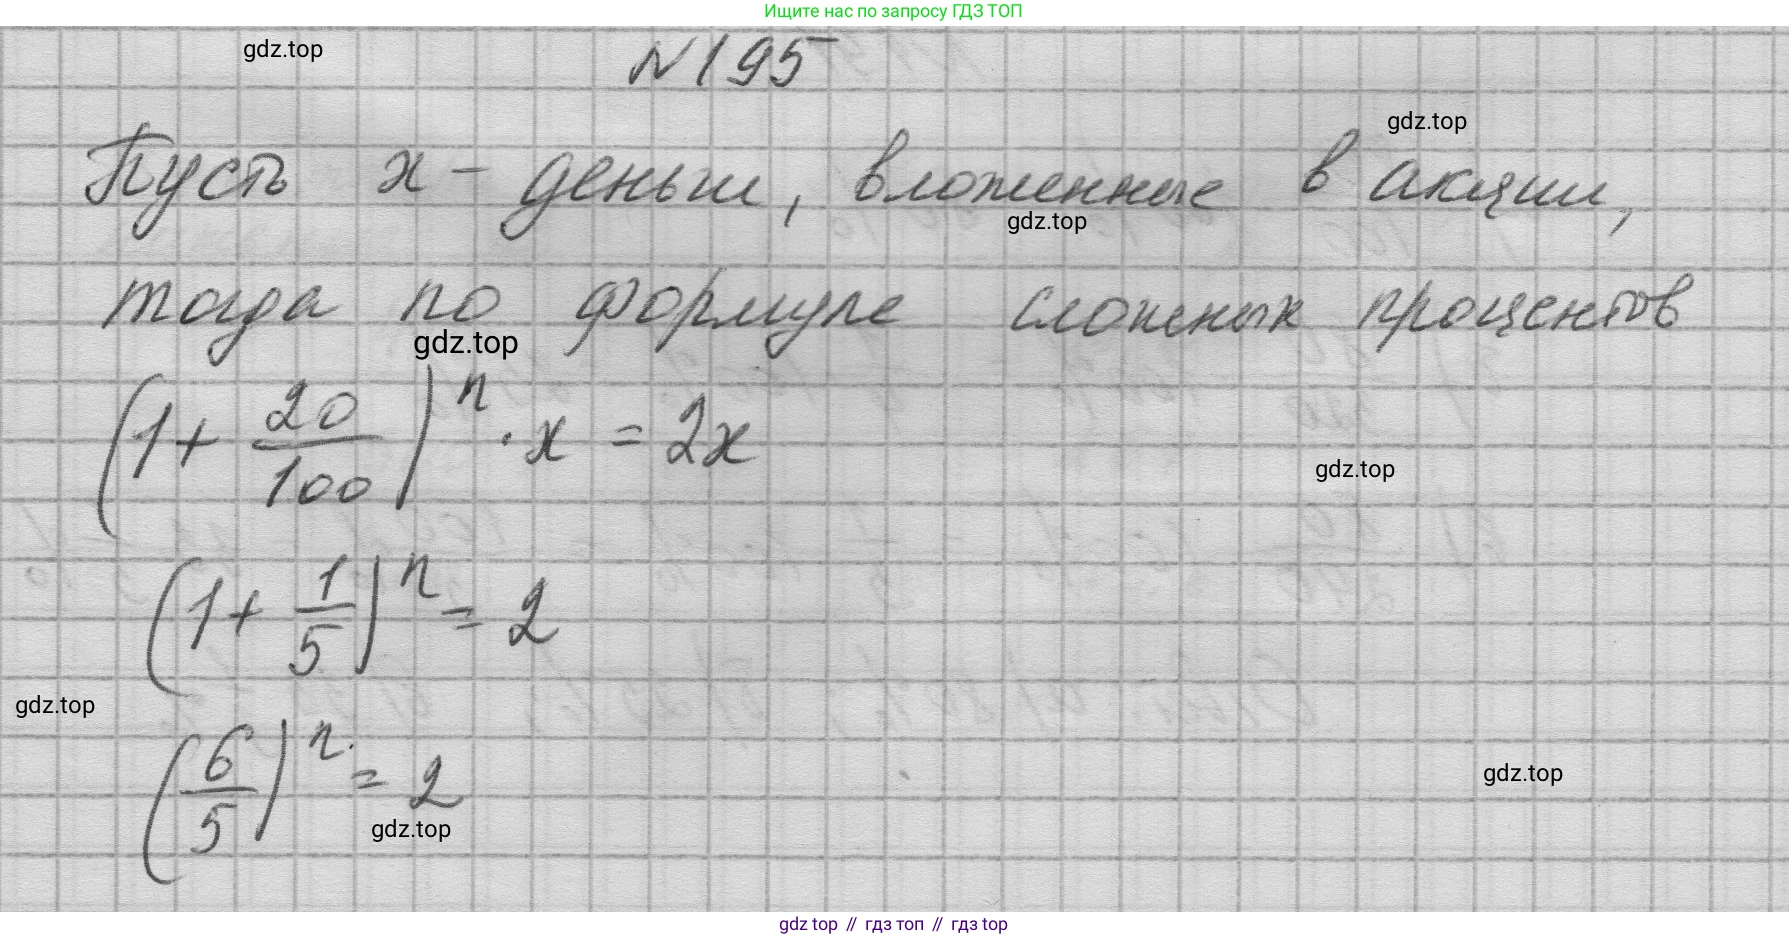 Ищите нас по запросу ГДЗ ТОП
gdz.top
№195
gdz.top
Пусть x - деньги, вложенные в акции,
gdz.top
тогда по формуле сложных процентов
gdz.top
(1 + 20/100)^n · x = 2x
gdz.top
(1 + 1/5)^n = 2
gdz.top
(6/5)^n = 2
gdz.top
gdz.top
gdz top // гдз топ // гдз top